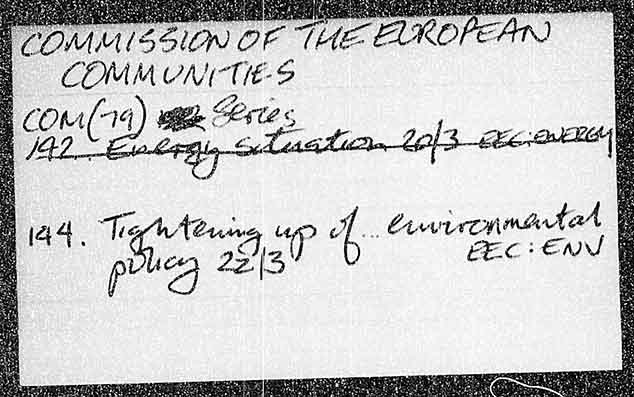 COMMISSION OF THE EUROPEAN
COMMUNITIES
COM(79) Series
142. Energy situation 20/3 EEC:ENERGY
144. Tightening up of... environmental
policy 22/3 EEC:ENV